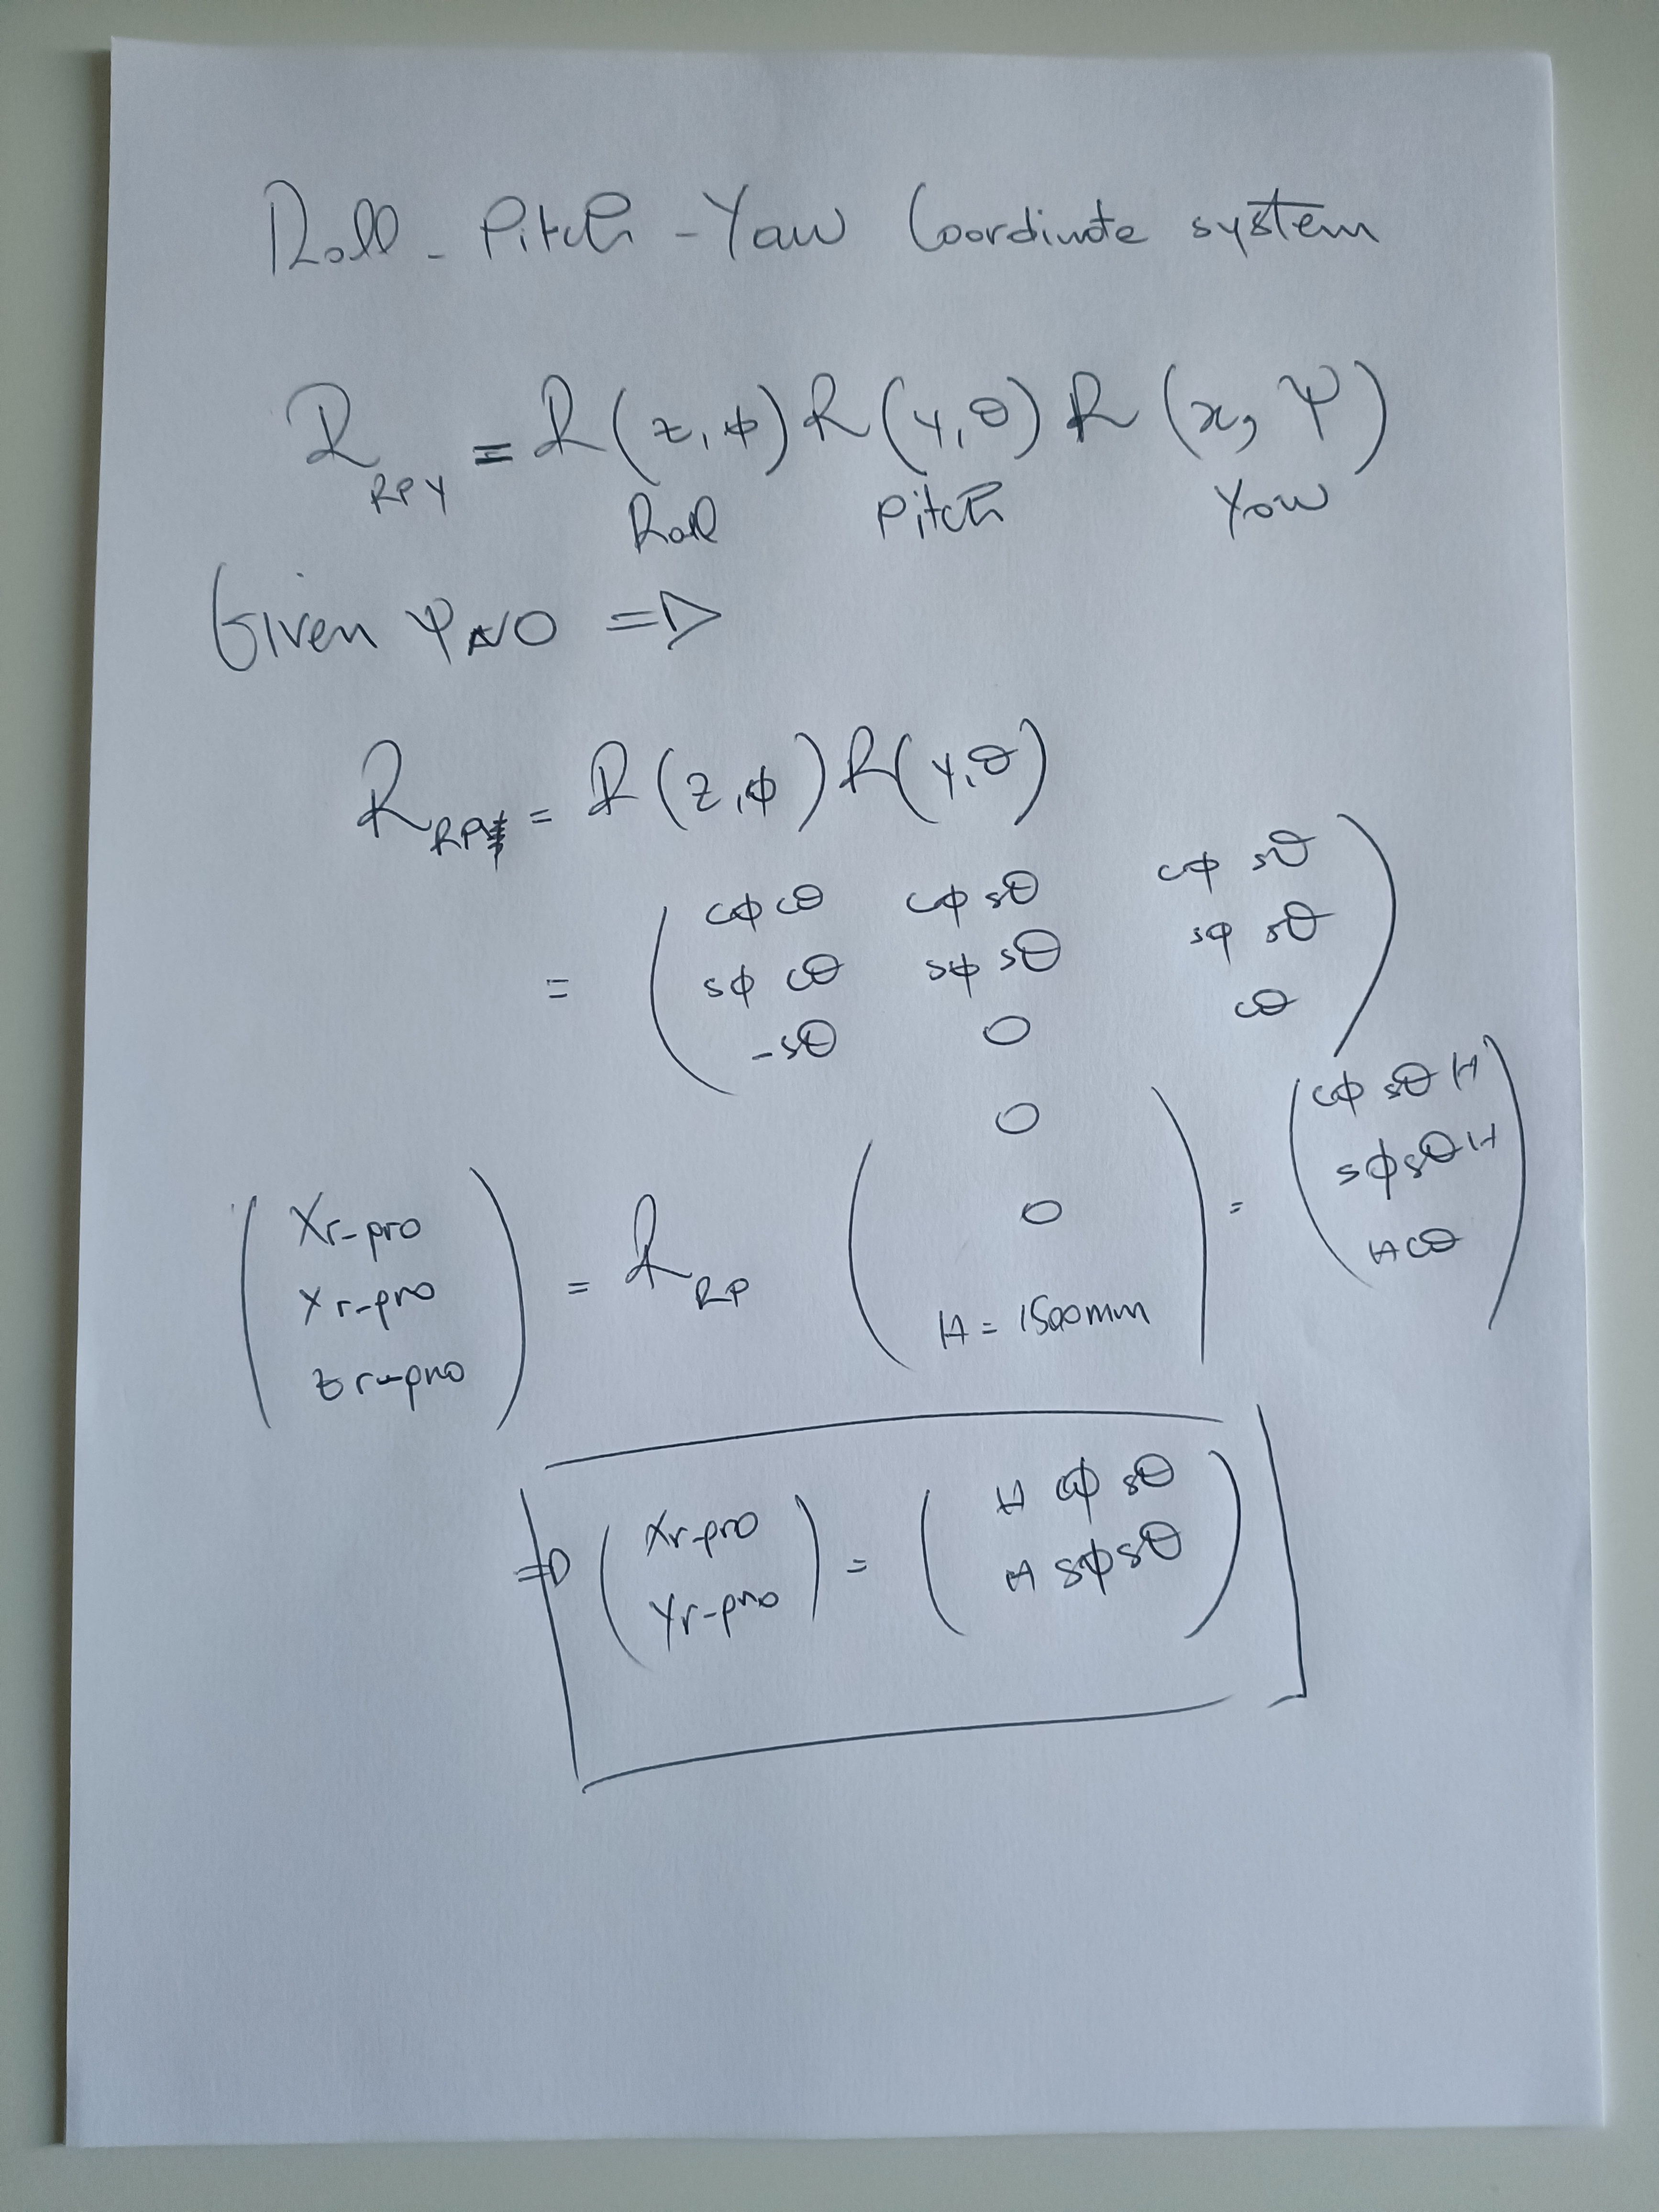 Roll - Pitch - Yaw Coordinate system
R_RPY = R(z,ϕ) R(y,θ) R(x, ψ)
Roll Pitch Yaw
Given ψ≈0 =>
R_RP = R(z,ϕ) R(y,θ)
= ( cϕ cθ cϕ sθ cϕ sθ
sϕ cθ sϕ sθ sϕ sθ
-sθ 0 cθ )
( Xr-pro Yr-pro Zr-pro ) = R_RP ( 0 0 H = 1500mm ) = ( cϕ sθ H sϕ sθ H H cθ )
=> ( Xr-pro Yr-pro ) = ( H cϕ sθ H sϕ sθ )